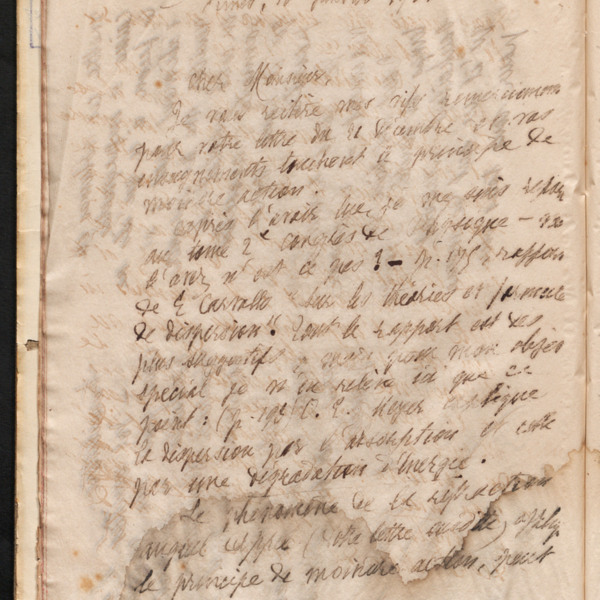 Cher Monsieur,
Je vous réitère mes vifs remerciements
pour votre lettre du 21 décembre et vos
enseignements touchant le principe de
moindre action.
Après l'avoir lue, je me suis
au tome 2e congrès de Physique –
l'avez n'est ce pas ? – p. 175, rapport
de E. Carvallo "sur les théories et formules
de dispersion". Tout le rapport est des
plus suggestifs, mais pour mon objet
spécial je n'en relève ici que ce
point : (p. 190) O. E. Meyer explique
la dispersion par l'absorption et celle
par une dégradation d'énergie.
Le phénomène de la réfraction
auquel (votre lettre susdite)
le principe de moindre action, peut